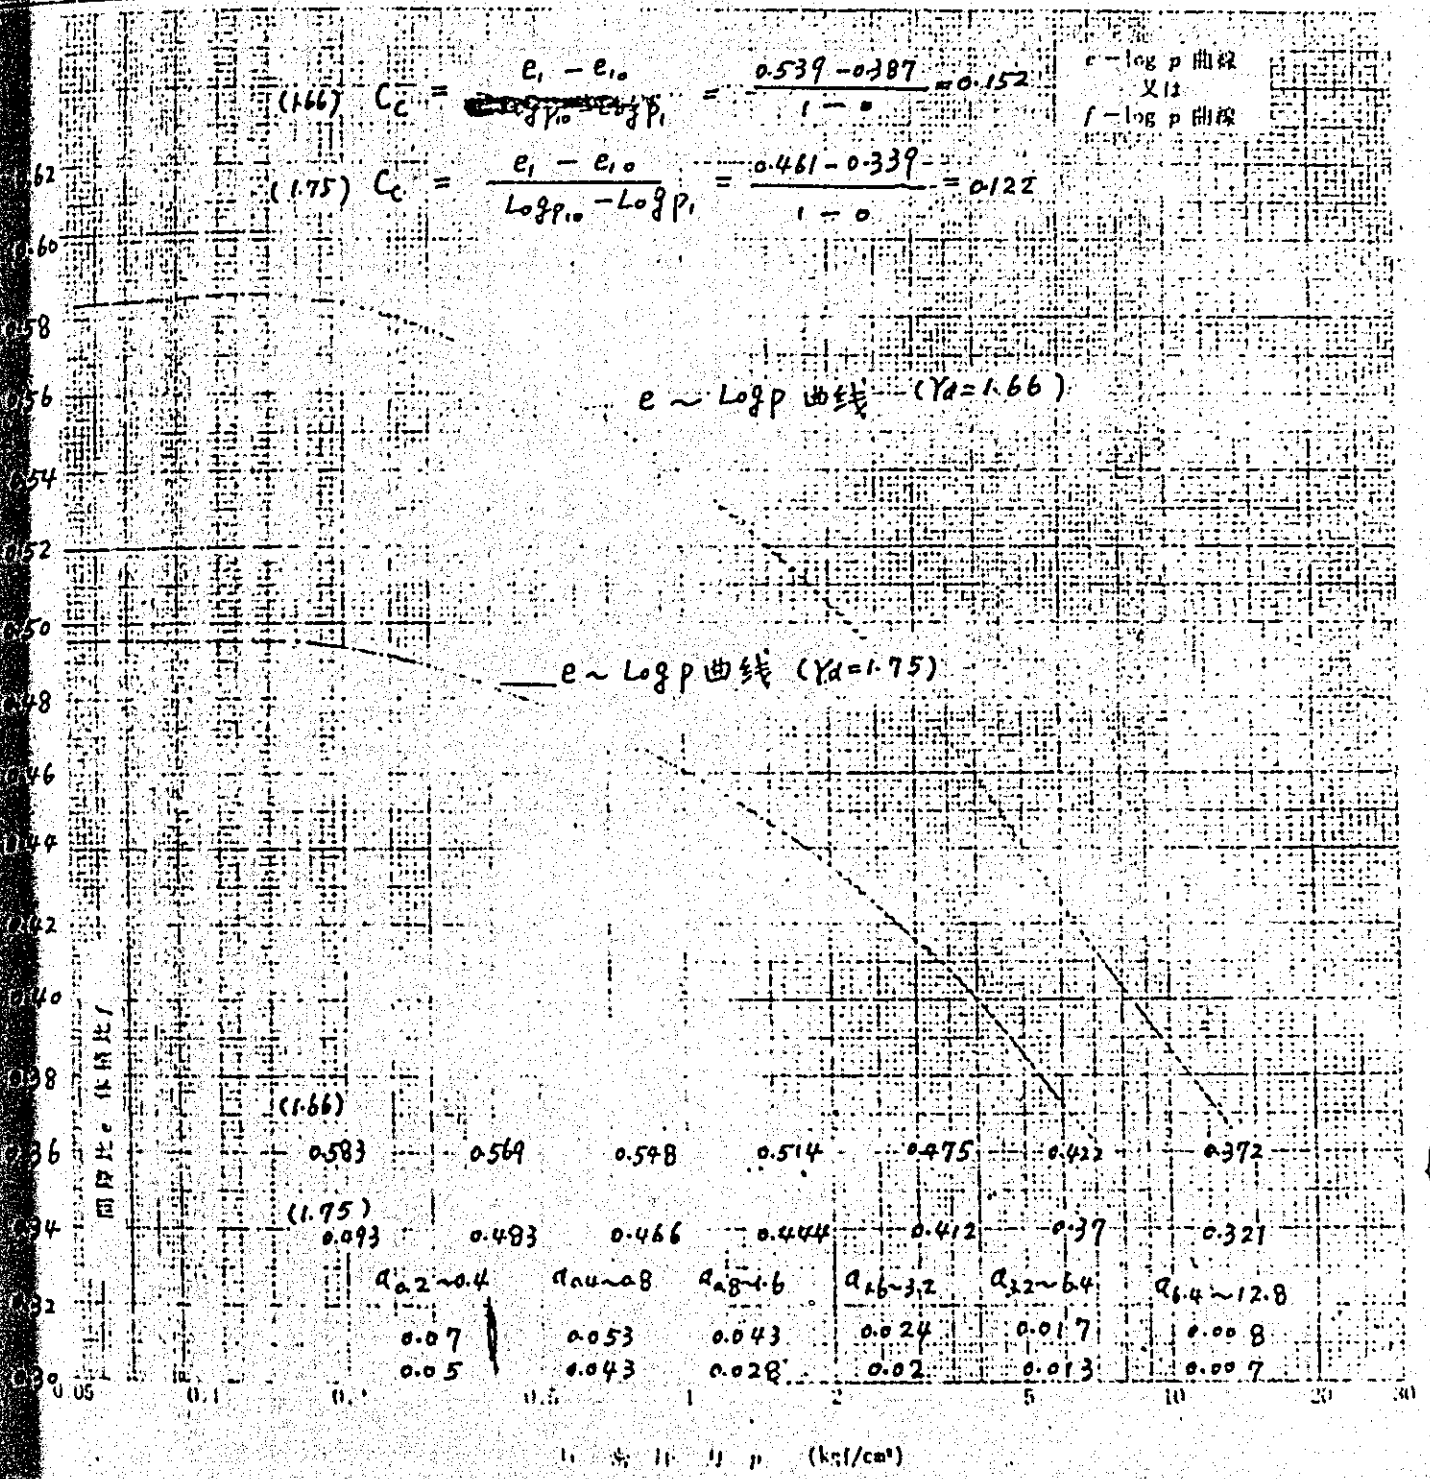 (1.66) Cc = e₁ - e₁₀ = 0.539 - 0.387 / 1 - 0 = 0.152
(1.75) Cc = e₁ - e₁₀ / Log p₁₀ - Log p₁ = 0.461 - 0.339 / 1 - 0 = 0.122
e-log p 曲線
又は
f-log p 曲線
0.62
0.60
0.58
0.56
0.54
0.52
0.50
0.48
0.46
0.44
0.42
0.40
0.38
0.36
0.34
0.32
0.30
e ~ Log p 曲线 (γd=1.66)
e ~ Log p 曲线 (γd=1.75)
間隙比 e 体積比 f
(1.66)
0.583 0.569 0.548 0.514 0.475 0.422 0.372
(1.75)
0.093 0.483 0.466 0.444 0.412 0.37 0.321
a0.2~0.4 a0.4~0.8 a0.8~1.6 a1.6~3.2 a3.2~6.4 a6.4~12.8
0.07 0.053 0.043 0.024 0.017 0.008
0.05 0.043 0.028 0.02 0.013 0.007
0.05 0.1 0.5 1 2 5 10 20 30
p (kgf/cm²)